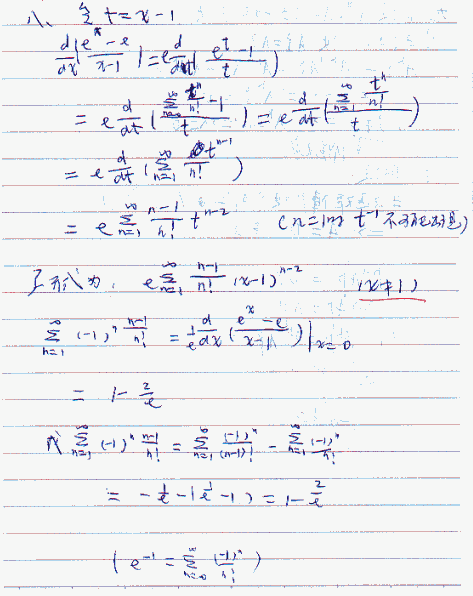 八、令 t=x-1
d/dx(e^x-e / x-1)=e d/dt(e^t-1 / t)
= e d/dt(∑_{n=0}^{∞} t^n/n! -1 / t) = e d/dt(∑_{n=1}^{∞} t^n/n! / t)
= e d/dt(∑_{n=1}^{∞} t^{n-1}/n!)
= e ∑_{n=1}^{∞} n-1/n! t^{n-2} (n=1时 t^{-1}不
为: e∑_{n=1}^{∞} n-1/n! (x-1)^{n-2} (x≠1)
∑_{n=1}^{∞} (-1)^n n-1/n! = 1/e d/dx(e^x-e / x-1)|_{x=0}
= 1-2/e
∑_{n=1}^{∞} (-1)^n n-1/n! = ∑_{n=1}^{∞} (-1)^n/(n-1)! - ∑_{n=1}^{∞} (-1)^n/n!
= -1/e-(1/e-1)=1-2/e
(e^{-1}=∑_{n=0}^{∞} (-1)^n/n!)